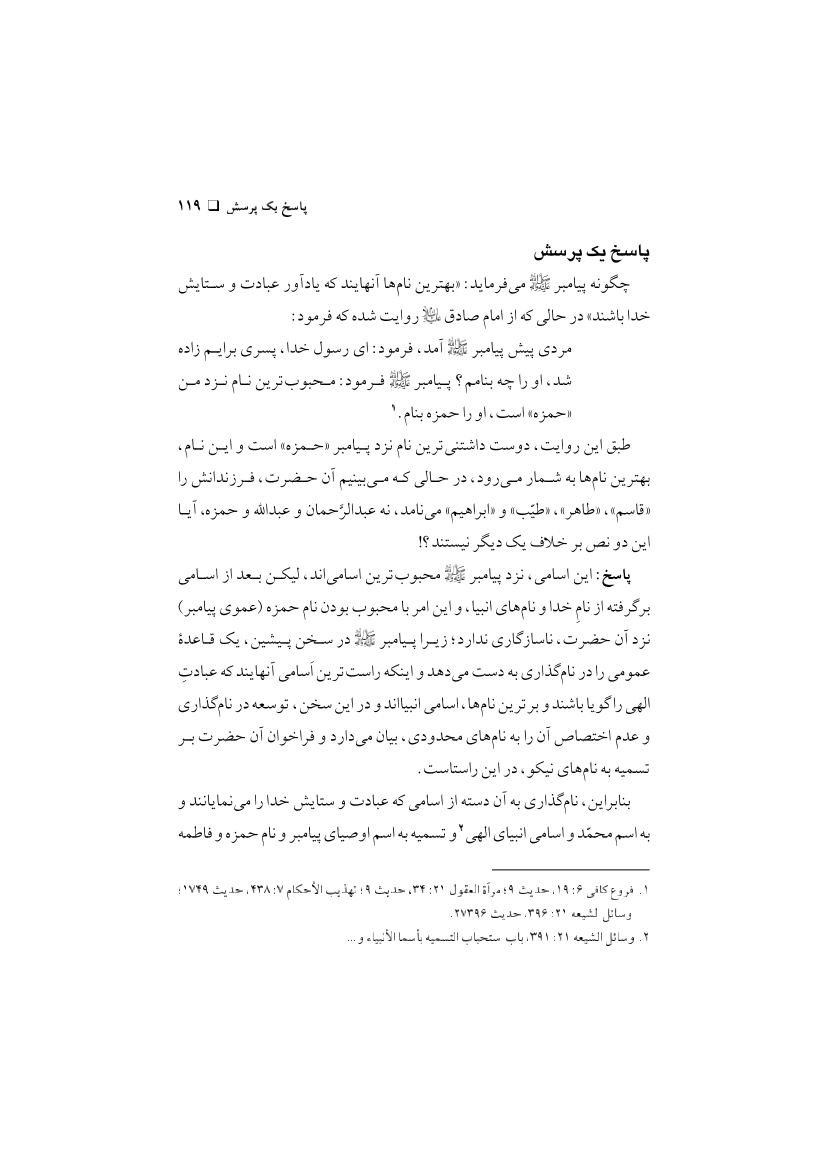 پاسخ یک پرسش ❑ ۱۱۹
پاسخ یک پرسش
چگونه پیامبر ﷺ می‌فرماید: «بهترین نام‌ها آنهایند که یادآور عبادت و ستایش
خدا باشند» در حالی که از امام صادق علیه‌السلام روایت شده که فرمود:
مردی پیش پیامبر ﷺ آمد، فرمود: ای رسول خدا، پسری برایم زاده
شد، او را چه بنامم؟ پیامبر ﷺ فرمود: محبوب‌ترین نام نزد من
«حمزه» است، او را حمزه بنام.۱
طبق این روایت، دوست داشتنی‌ترین نام نزد پیامبر «حمزه» است و این نام،
بهترین نام‌ها به شمار می‌رود، در حالی که می‌بینیم آن حضرت، فرزندانش را
«قاسم»، «طاهر»، «طیّب» و «ابراهیم» می‌نامد، نه عبدالرَّحمان و عبدالله و حمزه، آیا
این دو نص بر خلاف یک دیگر نیستند؟!
پاسخ: این اسامی، نزد پیامبر ﷺ محبوب‌ترین اسامی‌اند، لیکن بعد از اسامی
برگرفته از نامِ خدا و نام‌های انبیا، و این امر با محبوب بودن نام حمزه (عموی پیامبر)
نزد آن حضرت، ناسازگاری ندارد؛ زیرا پیامبر ﷺ در سخن پیشین، یک قاعدهٔ
عمومی را در نام‌گذاری به دست می‌دهد و اینکه راست‌ترین اَسامی آنهایند که عبادتِ
الهی را گویا باشند و برترین نام‌ها، اسامی انبیااند و در این سخن، توسعه در نام‌گذاری
و عدم اختصاص آن را به نام‌های محدودی، بیان می‌دارد و فراخوان آن حضرت بر
تسمیه به نام‌های نیکو، در این راستاست.
بنابراین، نام‌گذاری به آن دسته از اسامی که عبادت و ستایش خدا را می‌نمایانند و
به اسم محمّد و اسامی انبیای الهی۲ و تسمیه به اسم اوصیای پیامبر و نام حمزه و فاطمه
۱. فروع کافی ۶: ۱۹، حدیث ۹؛ مرآة العقول ۲۱: ۳۴، حدیث ۹؛ تهذیب الأحکام ۷: ۴۳۸، حدیث ۱۷۴۹؛
وسائل لشیعه ۲۱: ۳۹۶، حدیث ۲۷۳۹۶.
۲. وسائل الشیعه ۲۱: ۳۹۱، باب ستحباب التسمیه بأسما الأنبیاء و...